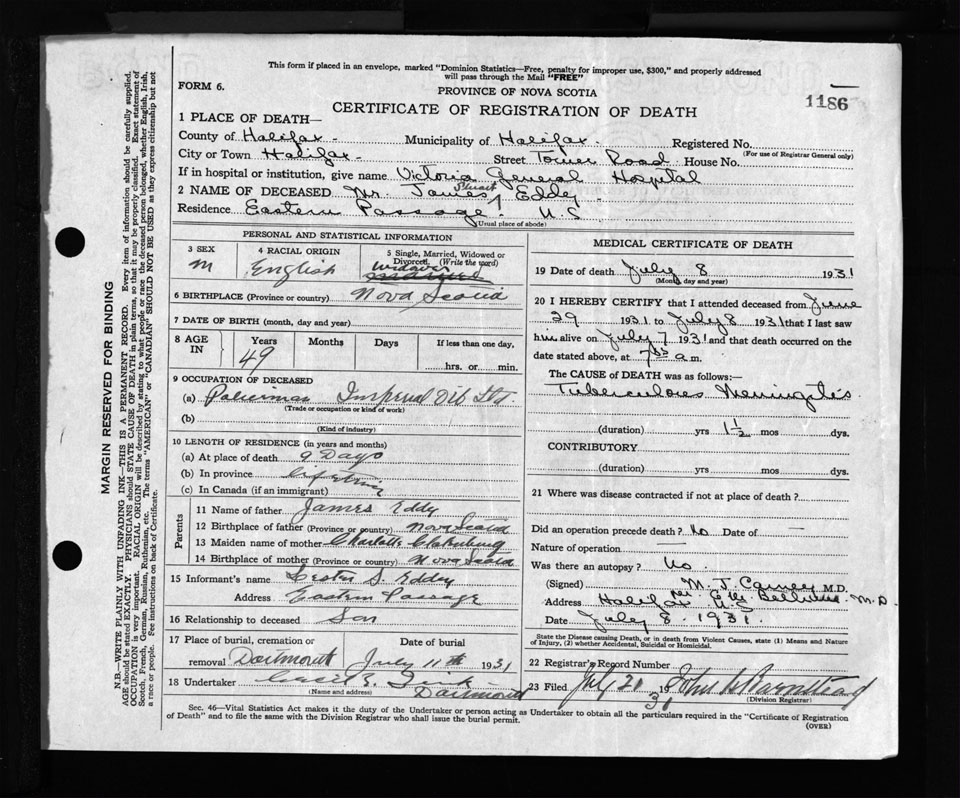 This form if placed in an envelope, marked "Dominion Statistics—Free, penalty for improper use, $300," and properly addressed
will pass through the Mail "FREE"
FORM 6.
PROVINCE OF NOVA SCOTIA
1186
CERTIFICATE OF REGISTRATION OF DEATH
1 PLACE OF DEATH—
County of Halifax - Municipality of Halifax. Registered No.
(For use of Registrar General only)
City or Town Halifax - Street Tower Road House No.
If in hospital or institution, give name Victoria General Hospital
2 NAME OF DECEASED Mr. James Stuart Eddy
Residence Eastern Passage. N.S
(Usual place of abode)
PERSONAL AND STATISTICAL INFORMATION
3 SEX
M
4 RACIAL ORIGIN
English
5 Single, Married, Widowed or
Divorced. (Write the word)
Widower
6 BIRTHPLACE (Province or country) Nova Scotia
7 DATE OF BIRTH (month, day and year)
8 AGE IN
Years Months Days If less than one day,
49
hrs. or min.
9 OCCUPATION OF DECEASED
(a) Policeman Imperial Oil Ltd
(Trade or occupation or kind of work)
(b)
(Kind of industry)
10 LENGTH OF RESIDENCE (in years and months)
(a) At place of death 9 Days
(b) In province Lifetime
(c) In Canada (if an immigrant)
Parents
11 Name of father James Eddy
12 Birthplace of father (Province or country) Nova Scotia
13 Maiden name of mother Charlotte
14 Birthplace of mother (Province or country) Nova Scotia
15 Informant's name Lester S. Eddy
Address Eastern Passage
16 Relationship to deceased Son
17 Place of burial, cremation or Date of burial
removal Dartmouth July 11th 1931
18 Undertaker
(Name and address) Dartmouth
MEDICAL CERTIFICATE OF DEATH
19 Date of death July 8 1931
(Month, day and year)
20 I HEREBY CERTIFY that I attended deceased from June
29 1931 to July 8 1931 that I last saw
him alive on July 7 1931 and that death occurred on the
date stated above, at 7 a.m.
The CAUSE of DEATH was as follows:—
Tuberculous Meningitis
(duration) yrs 1½ mos dys.
CONTRIBUTORY
(duration) yrs mos dys.
21 Where was disease contracted if not at place of death?
Did an operation precede death? No Date of —
Nature of operation
Was there an autopsy? No.
(Signed) M. J. Carney M.D.
Address Halifax N.S M.D.
Date July 8 - 1931.
State the Disease causing Death, or in death from Violent Causes, state (1) Means and Nature
of Injury, (2) whether Accidental, Suicidal or Homicidal.
22 Registrar's Record Number
23 Filed July 20 1931 John
(Division Registrar)
Sec. 46—Vital Statistics Act makes it the duty of the Undertaker or person acting as Undertaker to obtain all the particulars required in the "Certificate of Registration
of Death" and to file the same with the Division Registrar who shall issue the burial permit.
(OVER)
MARGIN RESERVED FOR BINDING
N.B.—WRITE PLAINLY WITH UNFADING INK—THIS IS A PERMANENT RECORD. Every item of information should be carefully supplied.
AGE should be stated EXACTLY. PHYSICIANS should STATE CAUSE OF DEATH in plain terms, so that it may be properly classified. Exact statement of
OCCUPATION is very important. RACIAL ORIGIN will be described by stating to what people or race the deceased person belonged, whether English, Irish,
Scotch, French, German, Russian, Ruthenian, etc. The terms "AMERICAN" or "CANADIAN" SHOULD NOT BE USED as they express citizenship but not
a race or people. See instructions on back of Certificate.